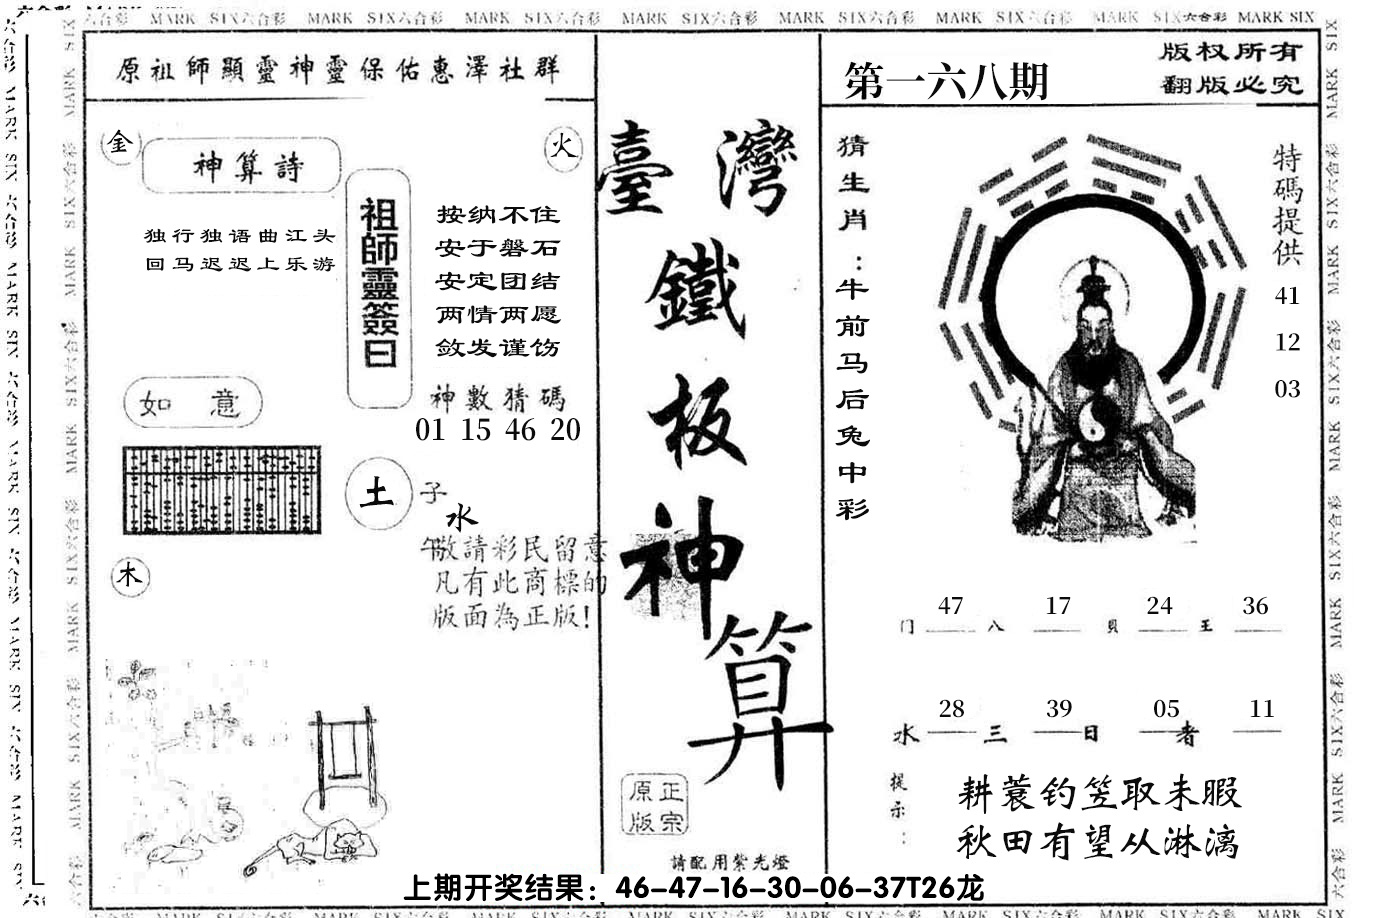 MARK SIX六合彩 MARK SIX六合彩 MARK SIX六合彩 MARK SIX六合彩 MARK SIX六合彩 MARK SIX六合彩 MARK SIX六合彩 MARK SIX
原祖師顯靈神靈保佑惠澤社群
金
神算詩
火
独行独语曲江头
回马迟迟上乐游
祖師靈簽曰
按纳不住
安于磐石
安定团结
两情两愿
敛发谨饬
神數猜碼
01 15 46 20
如意
土
子
水
午
木
敬請彩民留意
凡有此商標的
版面為正版!
臺灣
鐵
板
神
算
正宗
原版
請配用紫光燈
第一六八期
版权所有
翻版必究
猜生肖:牛前马后兔中彩
特碼提供
41
12
03
47 17 24 36
门 八 貝 王
28 39 05 11
水 三 日 者
提示:
耕蓑钓笠取未暇
秋田有望从淋漓
上期开奖结果：46-47-16-30-06-37T26龙